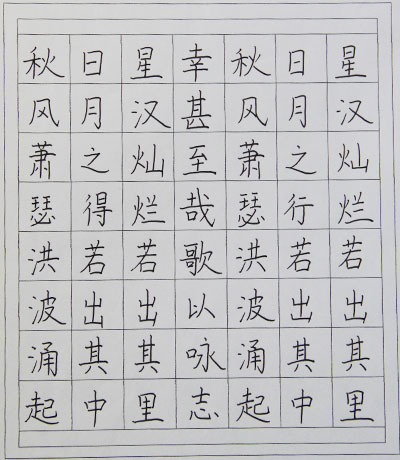 秋风萧瑟洪波涌起
日月之得若出其中
星汉灿烂若出其里
幸甚至哉歌以咏志
秋风萧瑟洪波涌起
日月之行若出其中
星汉灿烂若出其里